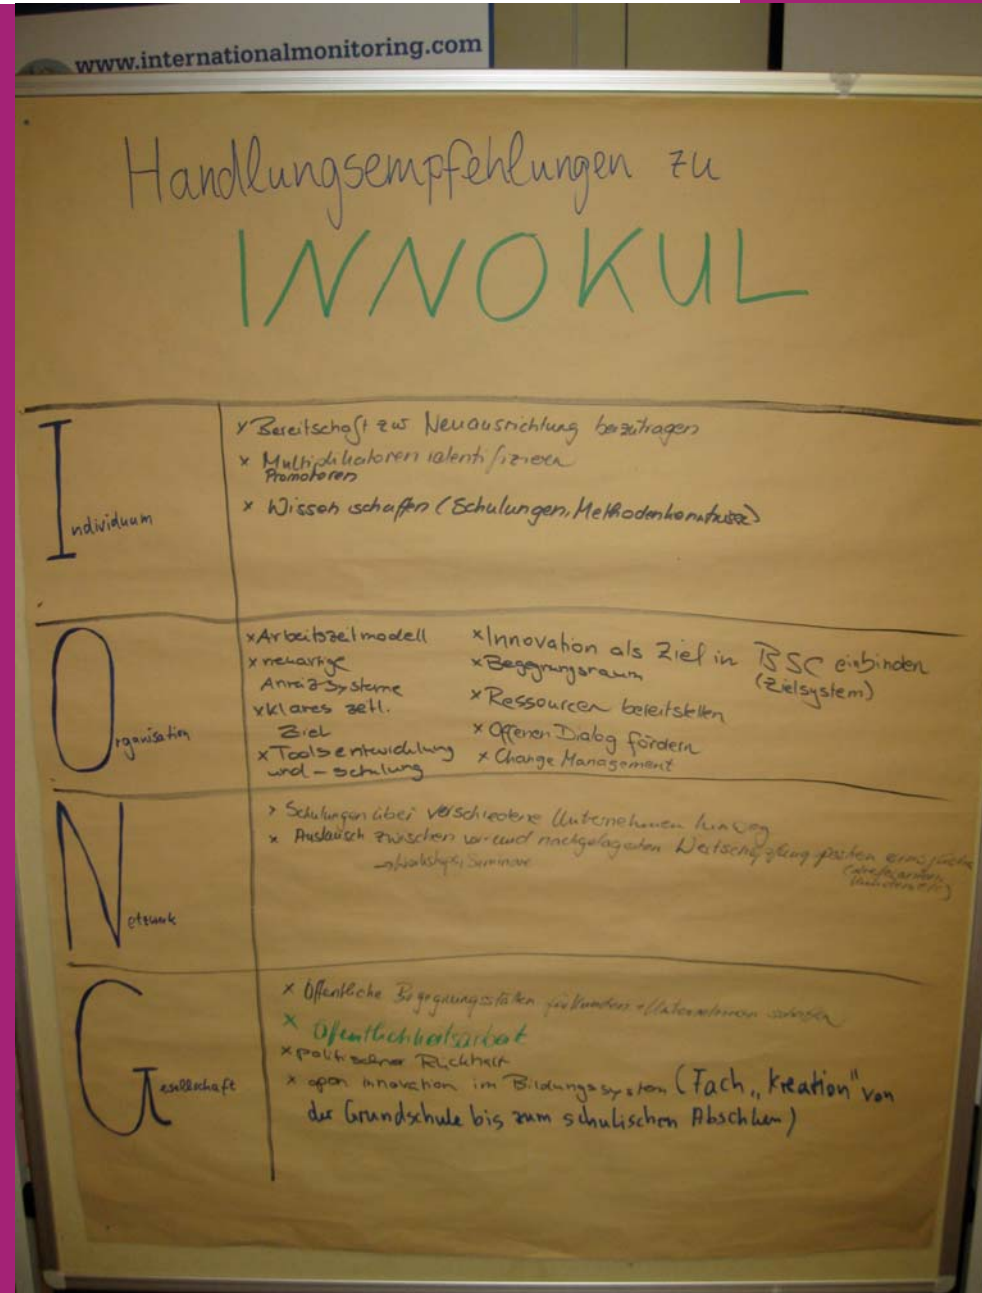 www.internationalmonitoring.com
Handlungsempfehlungen zu
INNOKUL
Individuum
x Bereitschaft zur Neuausrichtung beizutragen
x Multiplikatoren identifizieren
Promotoren
x Wissen schaffen (Schulungen, Methodenkenntnisse)
Organisation
x Arbeitszeitmodell
x neuartige
Anreizsysteme
x klares zeitl.
Ziel
x Toolsentwicklung
und - schulung
x Innovation als Ziel in BSC einbinden
(Zielsystem)
x Begegnungsraum
x Ressourcen bereitstellen
x Offenen Dialog fördern
x Change Management
Netzwerk
x Schulungen über verschiedene Unternehmen hinweg
x Austausch zwischen vor- und nachgelagerten
→ Workshops, Seminare
Gesellschaft
x Öffentliche Begegnungsstätten für Kunden + Unternehmen schaffen
x Öffentlichkeitsarbeit
x politischer Rückhalt
x open innovation im Bildungssystem (Fach „Kreation" von
der Grundschule bis zum schulischen Abschluss)